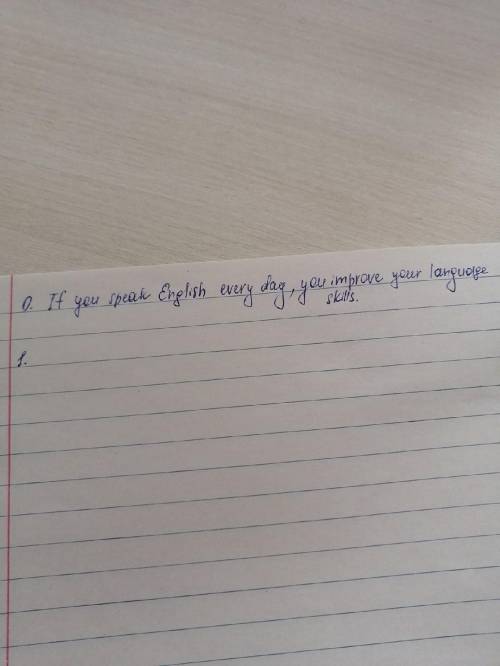 0. If you speak English every day, you improve your language
skills.
1.